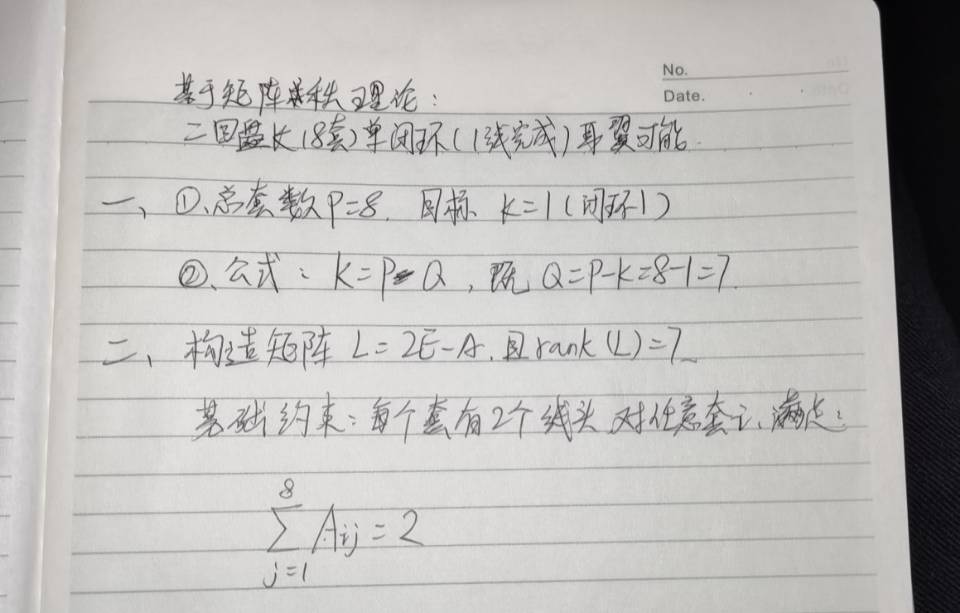 No.
Date.
基于矩阵求秩理论:
二回盘长(8套)单闭环(1线完成)耳翼可能.
一、①、总套数P=8. 目标 K=1(闭环1)
②、公式: K=P-Q, 既 Q=P-K=8-1=7.
二、构造矩阵 L=2E-A. 且rank(L)=7
基础约束:每个套有2个线头 对任意套i、满足:
8
∑ Aij=2
j=1